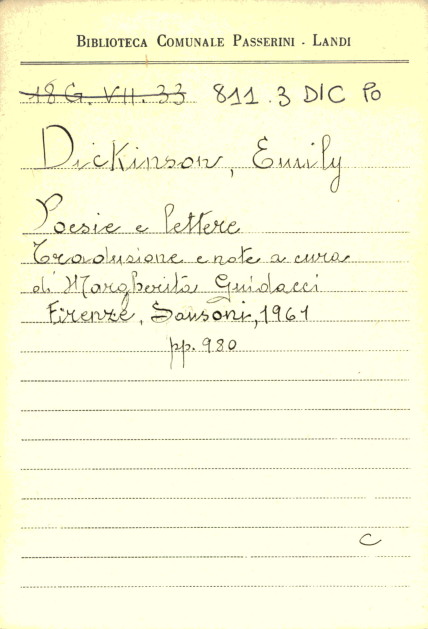 BIBLIOTECA COMUNALE PASSERINI - LANDI
18 G. VII. 33 811.3 DIC Po
Dickinson, Emily
Poesie e lettere
Traduzione e note a cura
di Margherita Guidacci
Firenze, Sansoni, 1961
pp. 980
C